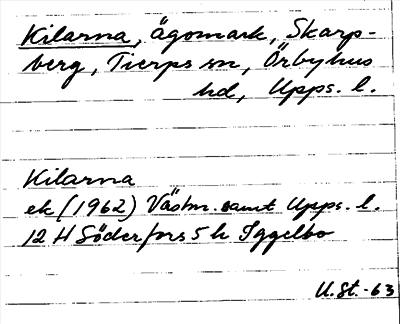 Kilarna, Ägomark, Skarp-
berg, Tierps sn, Örbyhus
hd, Upps. l.
Kilarna
ek (1962) Västm. samt Upps. l.
12 H Söderfors 5 h Iggelbo
U.St.-63